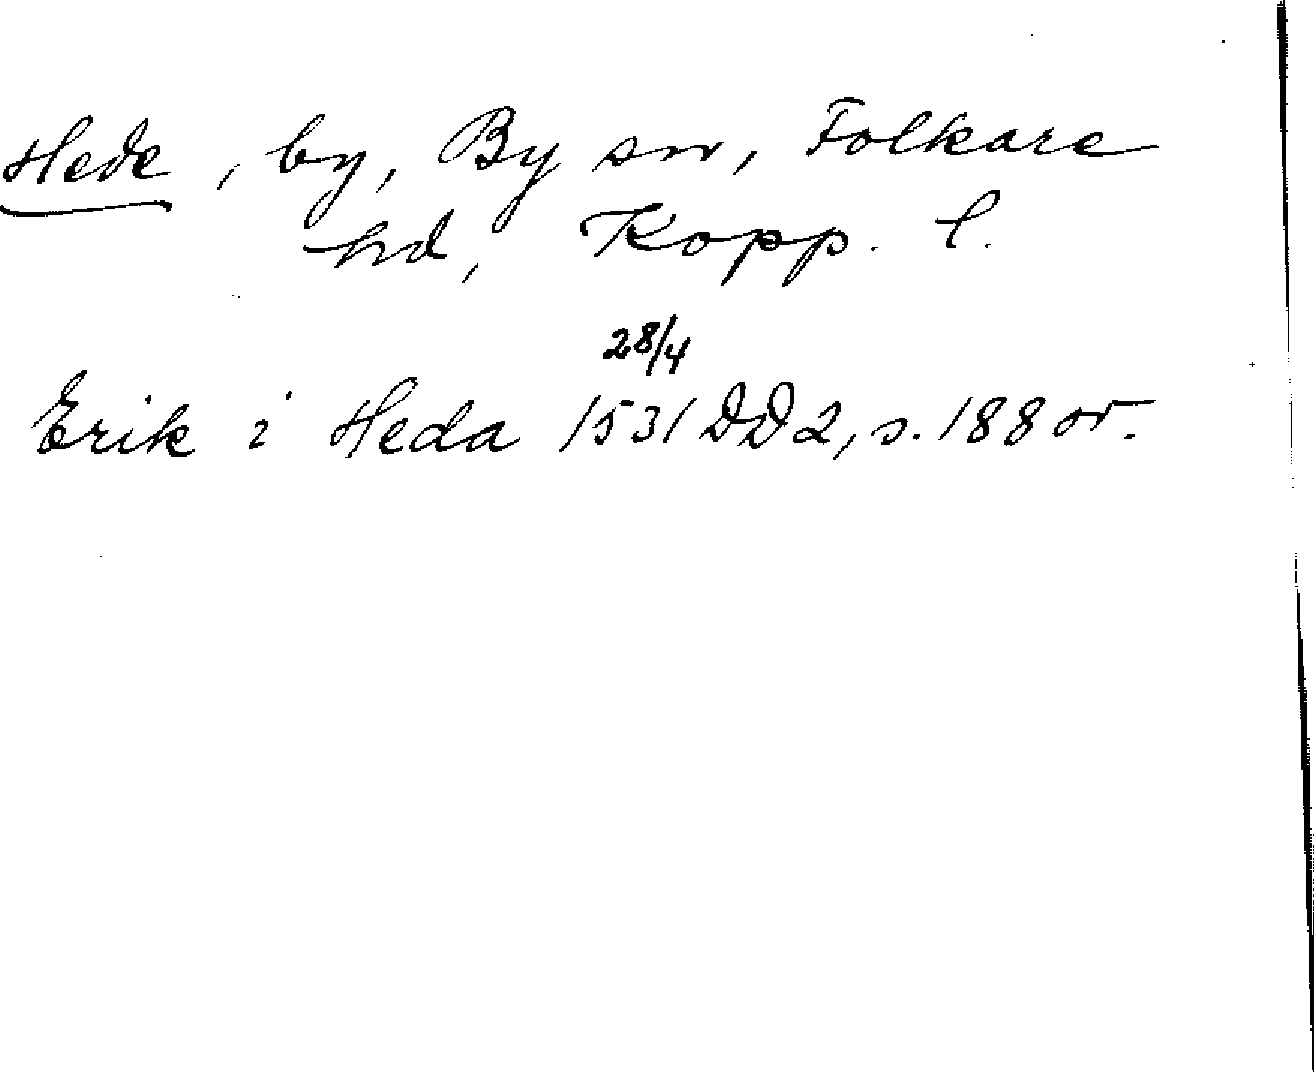 Hede, by, By sn, Folkare
hd, Kopp. l.
28/4
Erik i Heda 1531 DD 2, s. 188 or.